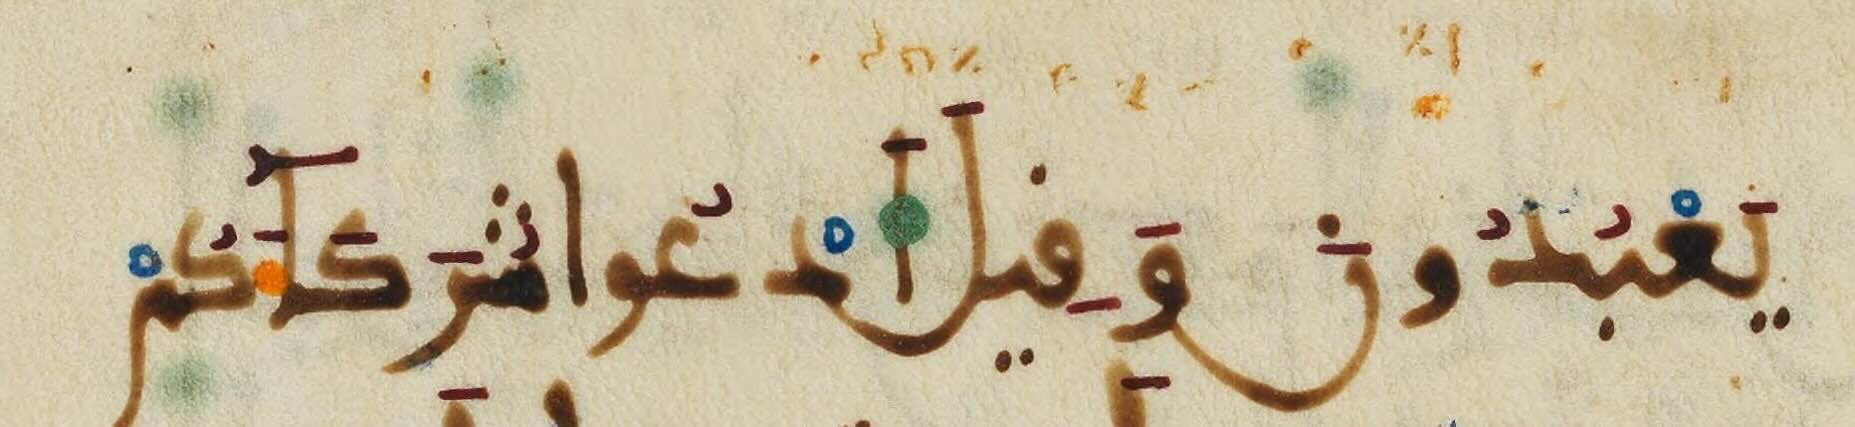 يَعْبُدُونَ وَقِيلَ ادْعُوا شُرَكَآءَكُمْ